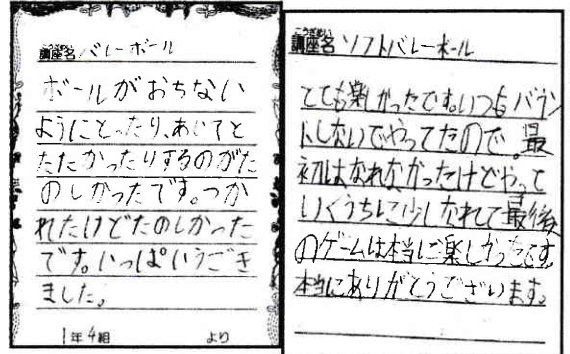 講座名 バレーボール
ボールがおちない
ようにとったり、あいてと
たたかったりするのがた
のしかったです。つか
れたけどたのしかった
です。いっぱいうごき
ました。
1年4組 より
講座名 ソフトバレーボール
とても楽しかったです。いつもバウン
トしないでやってたので。最
初はなれなかったけどやって
いくうちに少しなれて最後
のゲームは本当に楽しかったです。
本当にありがとうございます。